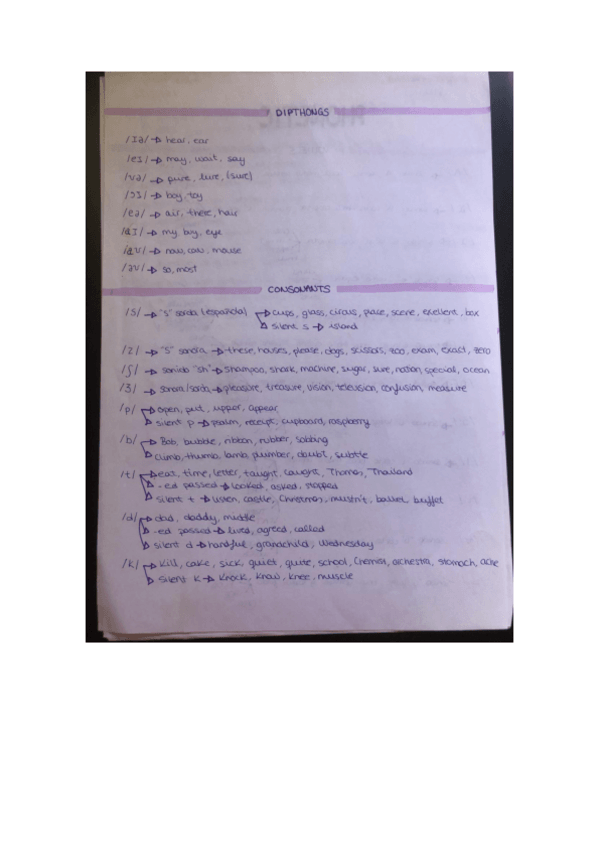 DIPTHONGS
/Iə/ → hear, ear
/eI/ → may, wait, say
/ʊə/ → pure, lure, (sure)
/ɔI/ → boy, toy
/eə/ → air, there, hair
/aI/ → my, buy, eye
/aʊ/ → now, cow, mouse
/əʊ/ → so, most
CONSONANTS
/S/ → "S" sorda (español) → cups, glass, circus, place, scene, exellent, box
→ silent s → island
/Z/ → "S" sonora → these, houses, please, dogs, scissors, zoo, exam, exact, zero
/ʃ/ → sonido "sh" → shampoo, shark, machine, sugar, sure, nation, special, ocean
/ʒ/ → sonora/sorda → pleasure, treasure, vision, television, confusion, measure
/p/ → open, put, upper, appear
→ silent p → psalm, receipt, cupboard, raspberry
/b/ → Bob, bubble, ribbon, rubber, sobbing
→ climb, thumb, lamb, plumber, doubt, subtle
/t/ → eat, time, letter, taught, caught, Thomas, Thailand
→ -ed passed → looked, asked, stopped
→ silent t → listen, castle, Christmas, mustn't, ballet, buffet
/d/ → dad, daddy, middle
→ -ed passed → lived, agreed, called
→ silent d → handful, grandchild, Wednesday
/k/ → kill, cake, sick, quiet, quite, school, Chemist, orchestra, stomach, ache
→ silent k → knock, know, knee, muscle